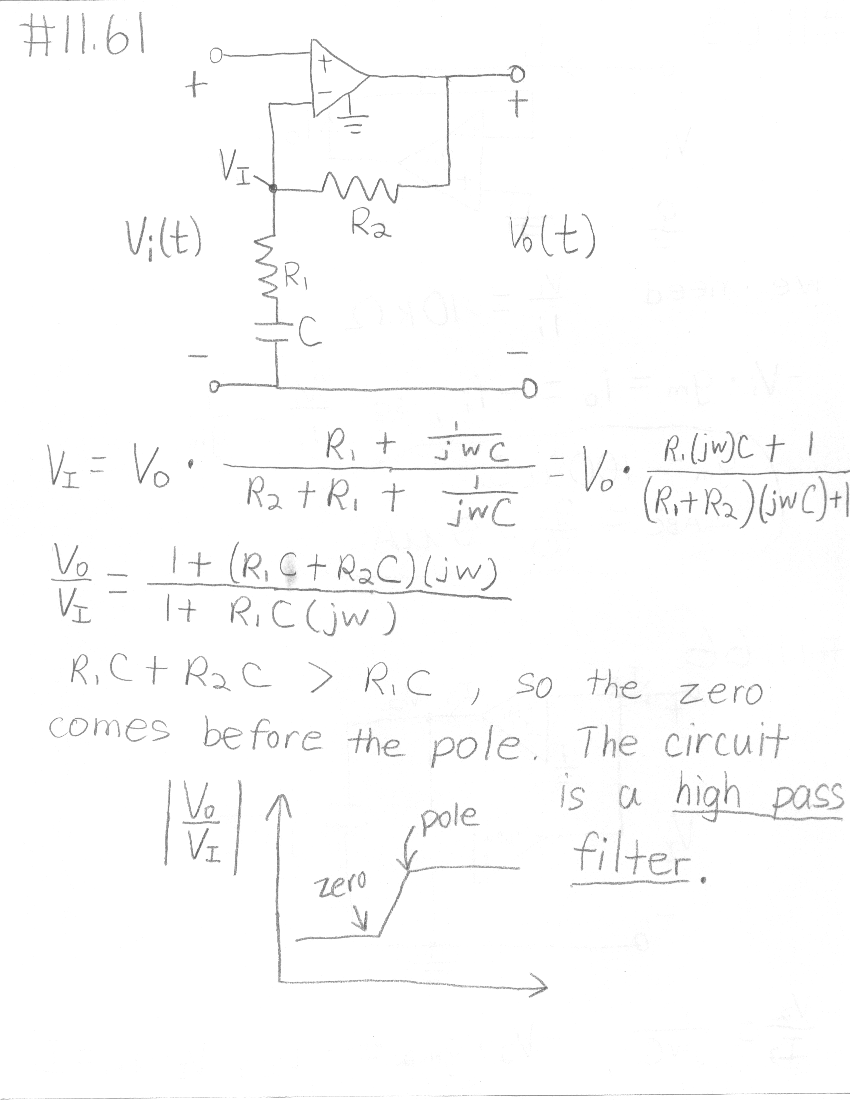 #11.61
+
+
−
+
V_I
R₂
V_i(t)
V_o(t)
R₁
C
−
−
V_I = V_o · (R₁ + 1/(jwC)) / (R₂ + R₁ + 1/(jwC)) = V_o · (R₁(jw)C + 1) / ((R₁+R₂)(jwC)+1)
V_o/V_I = (1 + (R₁C + R₂C)(jw)) / (1 + R₁C(jw))
R₁C + R₂C > R₁C , so the zero
comes before the pole. The circuit
is a high pass
filter.
|V_o/V_I|
pole
zero